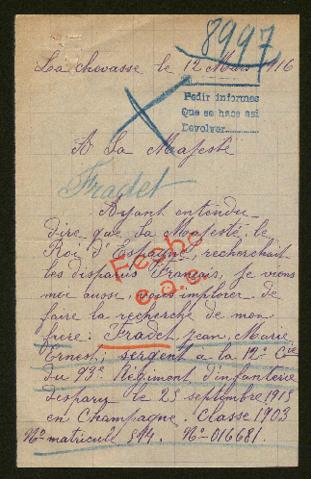 8997
La chevasse le 12 Mars 1916
Pedir informes
Que se hace asi
Devolver
A Sa Majesté
Fradet
Ayant entendu
dire que Sa Majesté: le
Roi d'Espagne, recherchait
les disparus Français, je viens
moi aussi, vous implorer de
faire la recherche de mon
frère: Fradet Jean, Marie
Ernest; sergent a la 12e Cie
du 93e Régiment d'infanterie
disparu le 25 septembre 1915
en Champagne. Classe 1903
No matricule 814. No 016681.
Fecho